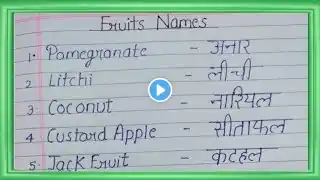 Fruits Names
1. Pomegranate - अनार
2 Litchi - लीची
3. Coconut - नारियल
4 Custard Apple - सीताफल
5. Jack Fruit - कटहल